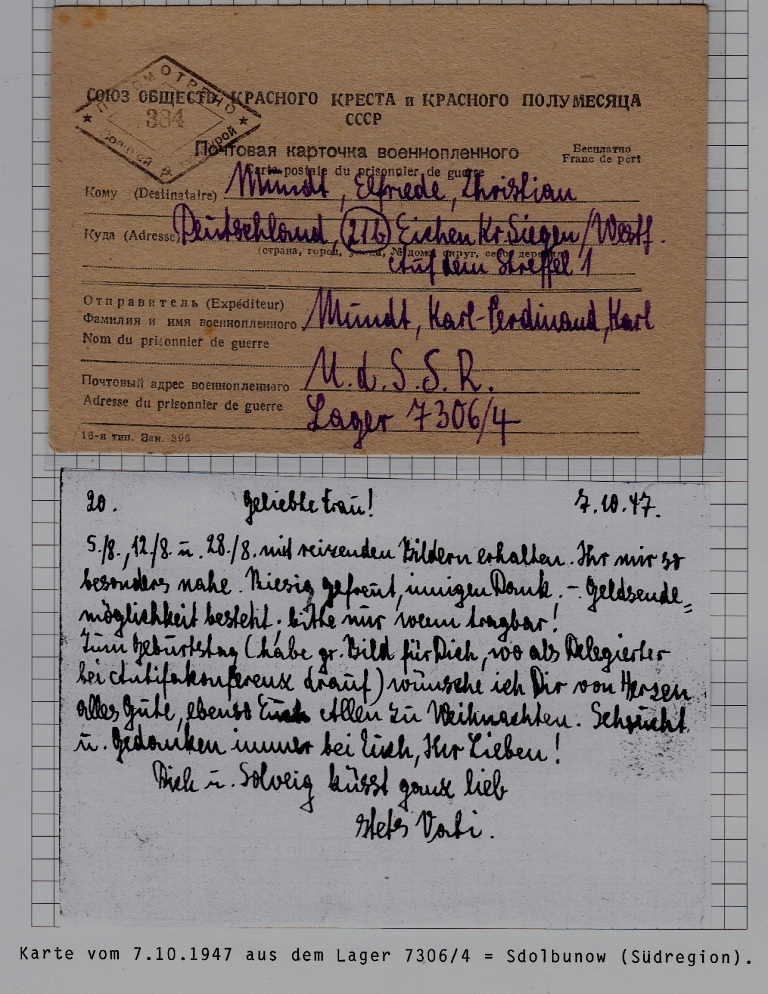 ПРОСМОТРЕНО
384
СОЮЗ ОБЩЕСТВ КРАСНОГО КРЕСТА и КРАСНОГО ПОЛУМЕСЯЦА
СССР
Почтовая карточка военнопленного
Carte postale du prisonnier de guerre
Бесплатно
Franc de port
Кому (Destinataire) Mundt, Elfriede, Christian
Куда (Adresse) Deutschland, (21b) Eichen Kr. Siegen/Westf.
(страна, город, улица, № дома, округ, село, деревня)
Auf dem Streffel 1
Отправитель (Expéditeur)
Фамилия и имя военнопленного Mundt, Karl-Ferdinand, Karl
Nom du prisonnier de guerre
Почтовый адрес военнопленного U.d.S.S.R.
Adresse du prisonnier de guerre Lager 7306/4
16-я тип. Зак. 395
20. Geliebte Frau! 7.10.47.
5./8., 12./8. u. 28./8. mit reizenden Bildern erhalten. Ihr mir so
besonders nahe. Riesig gefreut, innigen Dank. – Geldsende=
möglichkeit besteht. bitte nur wenn tragbar!
Zum Geburtstag (habe gr. Bild für Dich, wo als Delegierter
bei Antifakonferenz drauf) wünsche ich Dir von Herzen
alles Gute, ebenso Euch Allen zu Weihnachten. Sehnsucht
u. Gedanken immer bei Euch, Ihr Lieben!
Dich u. Solveig küsst ganz lieb
stets Vati.
Karte vom 7.10.1947 aus dem Lager 7306/4 = Sdolbunow (Südregion).